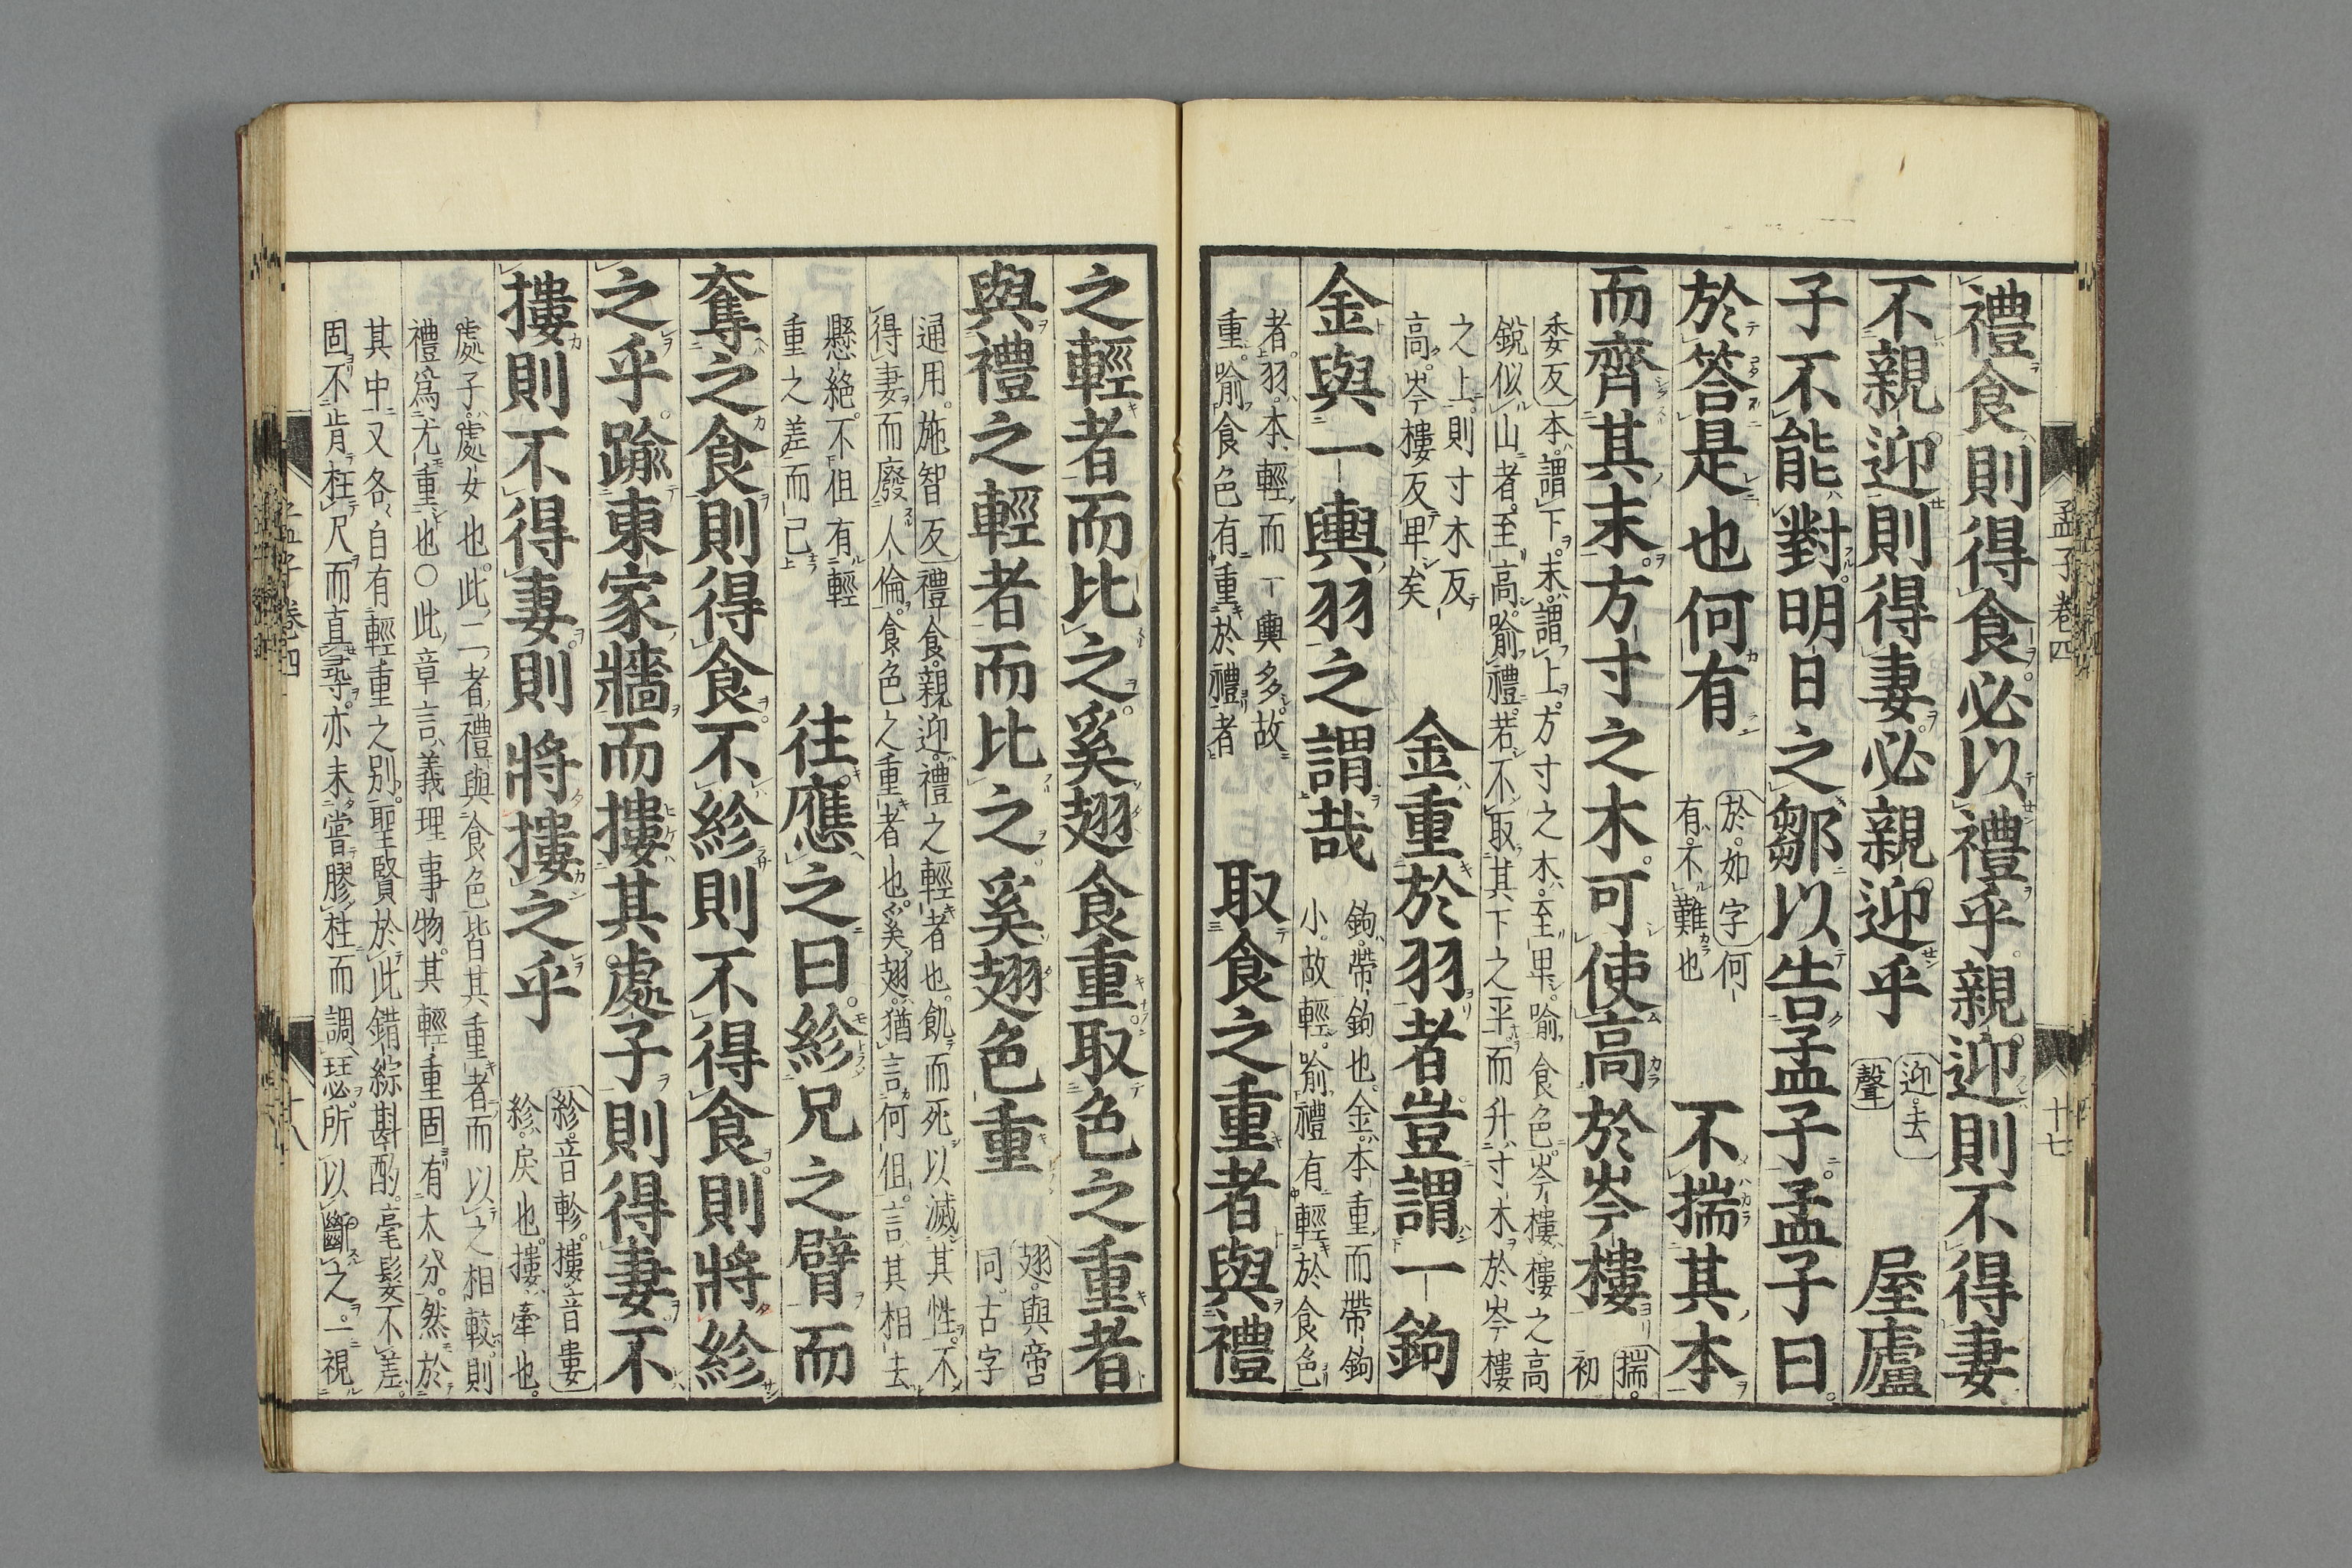 孟子卷四
十七
禮食則得食必以禮乎親迎則不得妻
不親迎則得妻必親迎乎 迎去聲 屋廬
子不能對明日之鄒以告孟子孟子曰
於答是也何有 於如字何有不難也 不揣其本
而齊其末方寸之木可使高於岑樓 揣初
委反本謂下末謂上方寸之木至卑喻食色岑樓樓之高
銳似山者至高喻禮若不取其下之平而升寸木於岑樓
之上則寸木反
高岑樓反卑矣 金重於羽者豈謂一鉤
金與一輿羽之謂哉 鉤帶鉤也金本重而帶鉤
小故輕喻禮有輕於食色
者羽本輕而一輿多故
重喻食色有重於禮者 取食之重者與禮
之輕者而比之奚翅食重取色之重者
與禮之輕者而比之奚翅色重 翅與啻同古字
通用施智反禮食親迎禮之輕者也飢而死以滅其性不
得妻而廢人倫食色之重者也奚翅猶言何但言其相去
懸絕不但有輕
重之差而已 往應之曰紾兄之臂而
奪之食則得食不紾則不得食則將紾
之乎踰東家牆而摟其處子則得妻不
摟則不得妻則將摟之乎 紾音軫摟音婁
紾戾也摟牽也
處子處女也此二者禮與食色皆其重者而以之相較則
禮爲尤重也○此章言義理事物其輕重固有大分然於
其中又各自有輕重之別聖賢於此錯綜斟酌毫髮不差
固不肯枉尺而直尋亦未嘗膠柱而調瑟所以斷之一視
卷四
十八